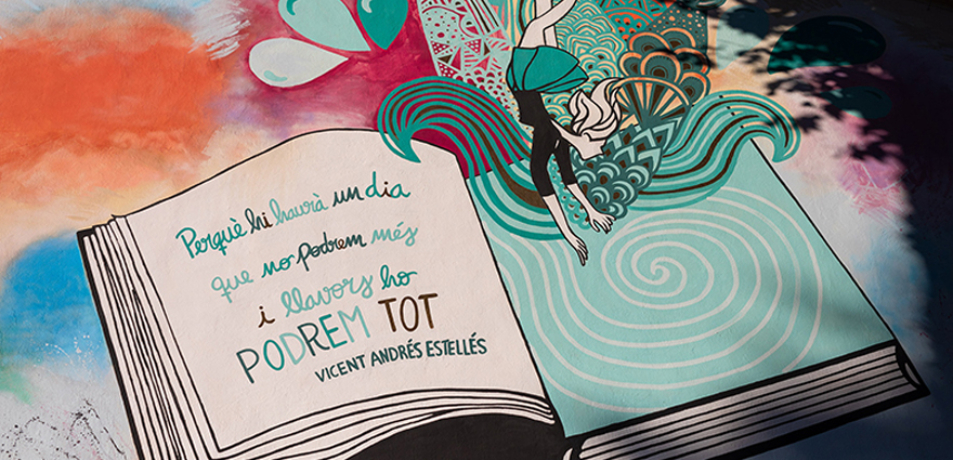 Perquè hi haurà un dia
que no podrem més
i llavors ho
PODREM TOT
VICENT ANDRÉS ESTELLÉS